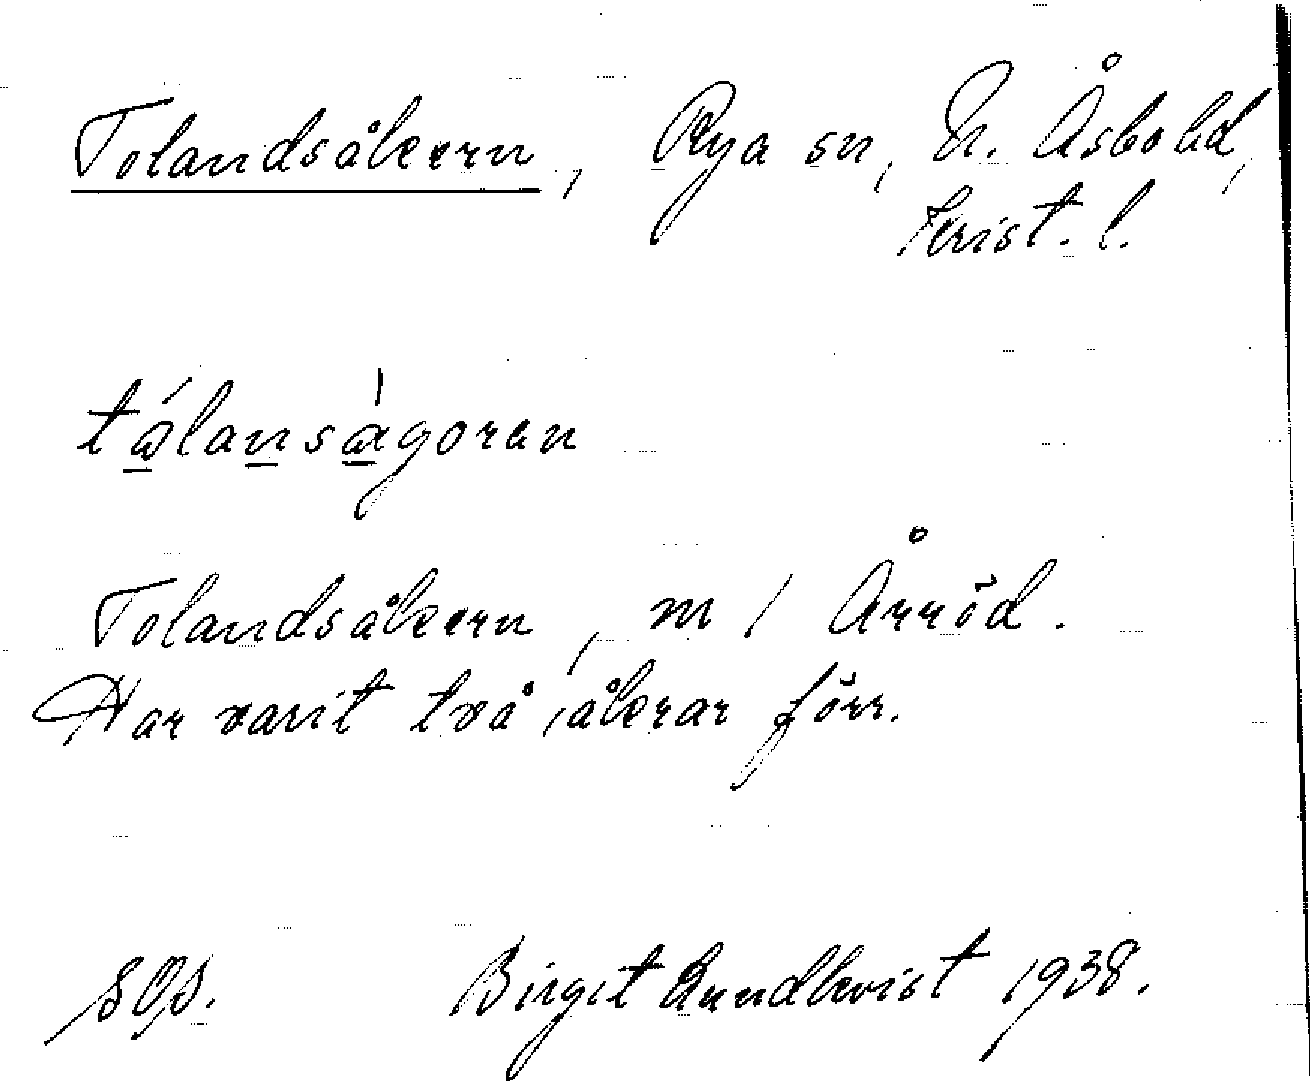 Tolandsåkern, Rya sn, N. Åsbo hd,
Krist. l.
tálanságoran
Tolandsåkern, m / Årröd.
Har varit två åkrar förr.
SOS. Birgit Lundkvist 1938.